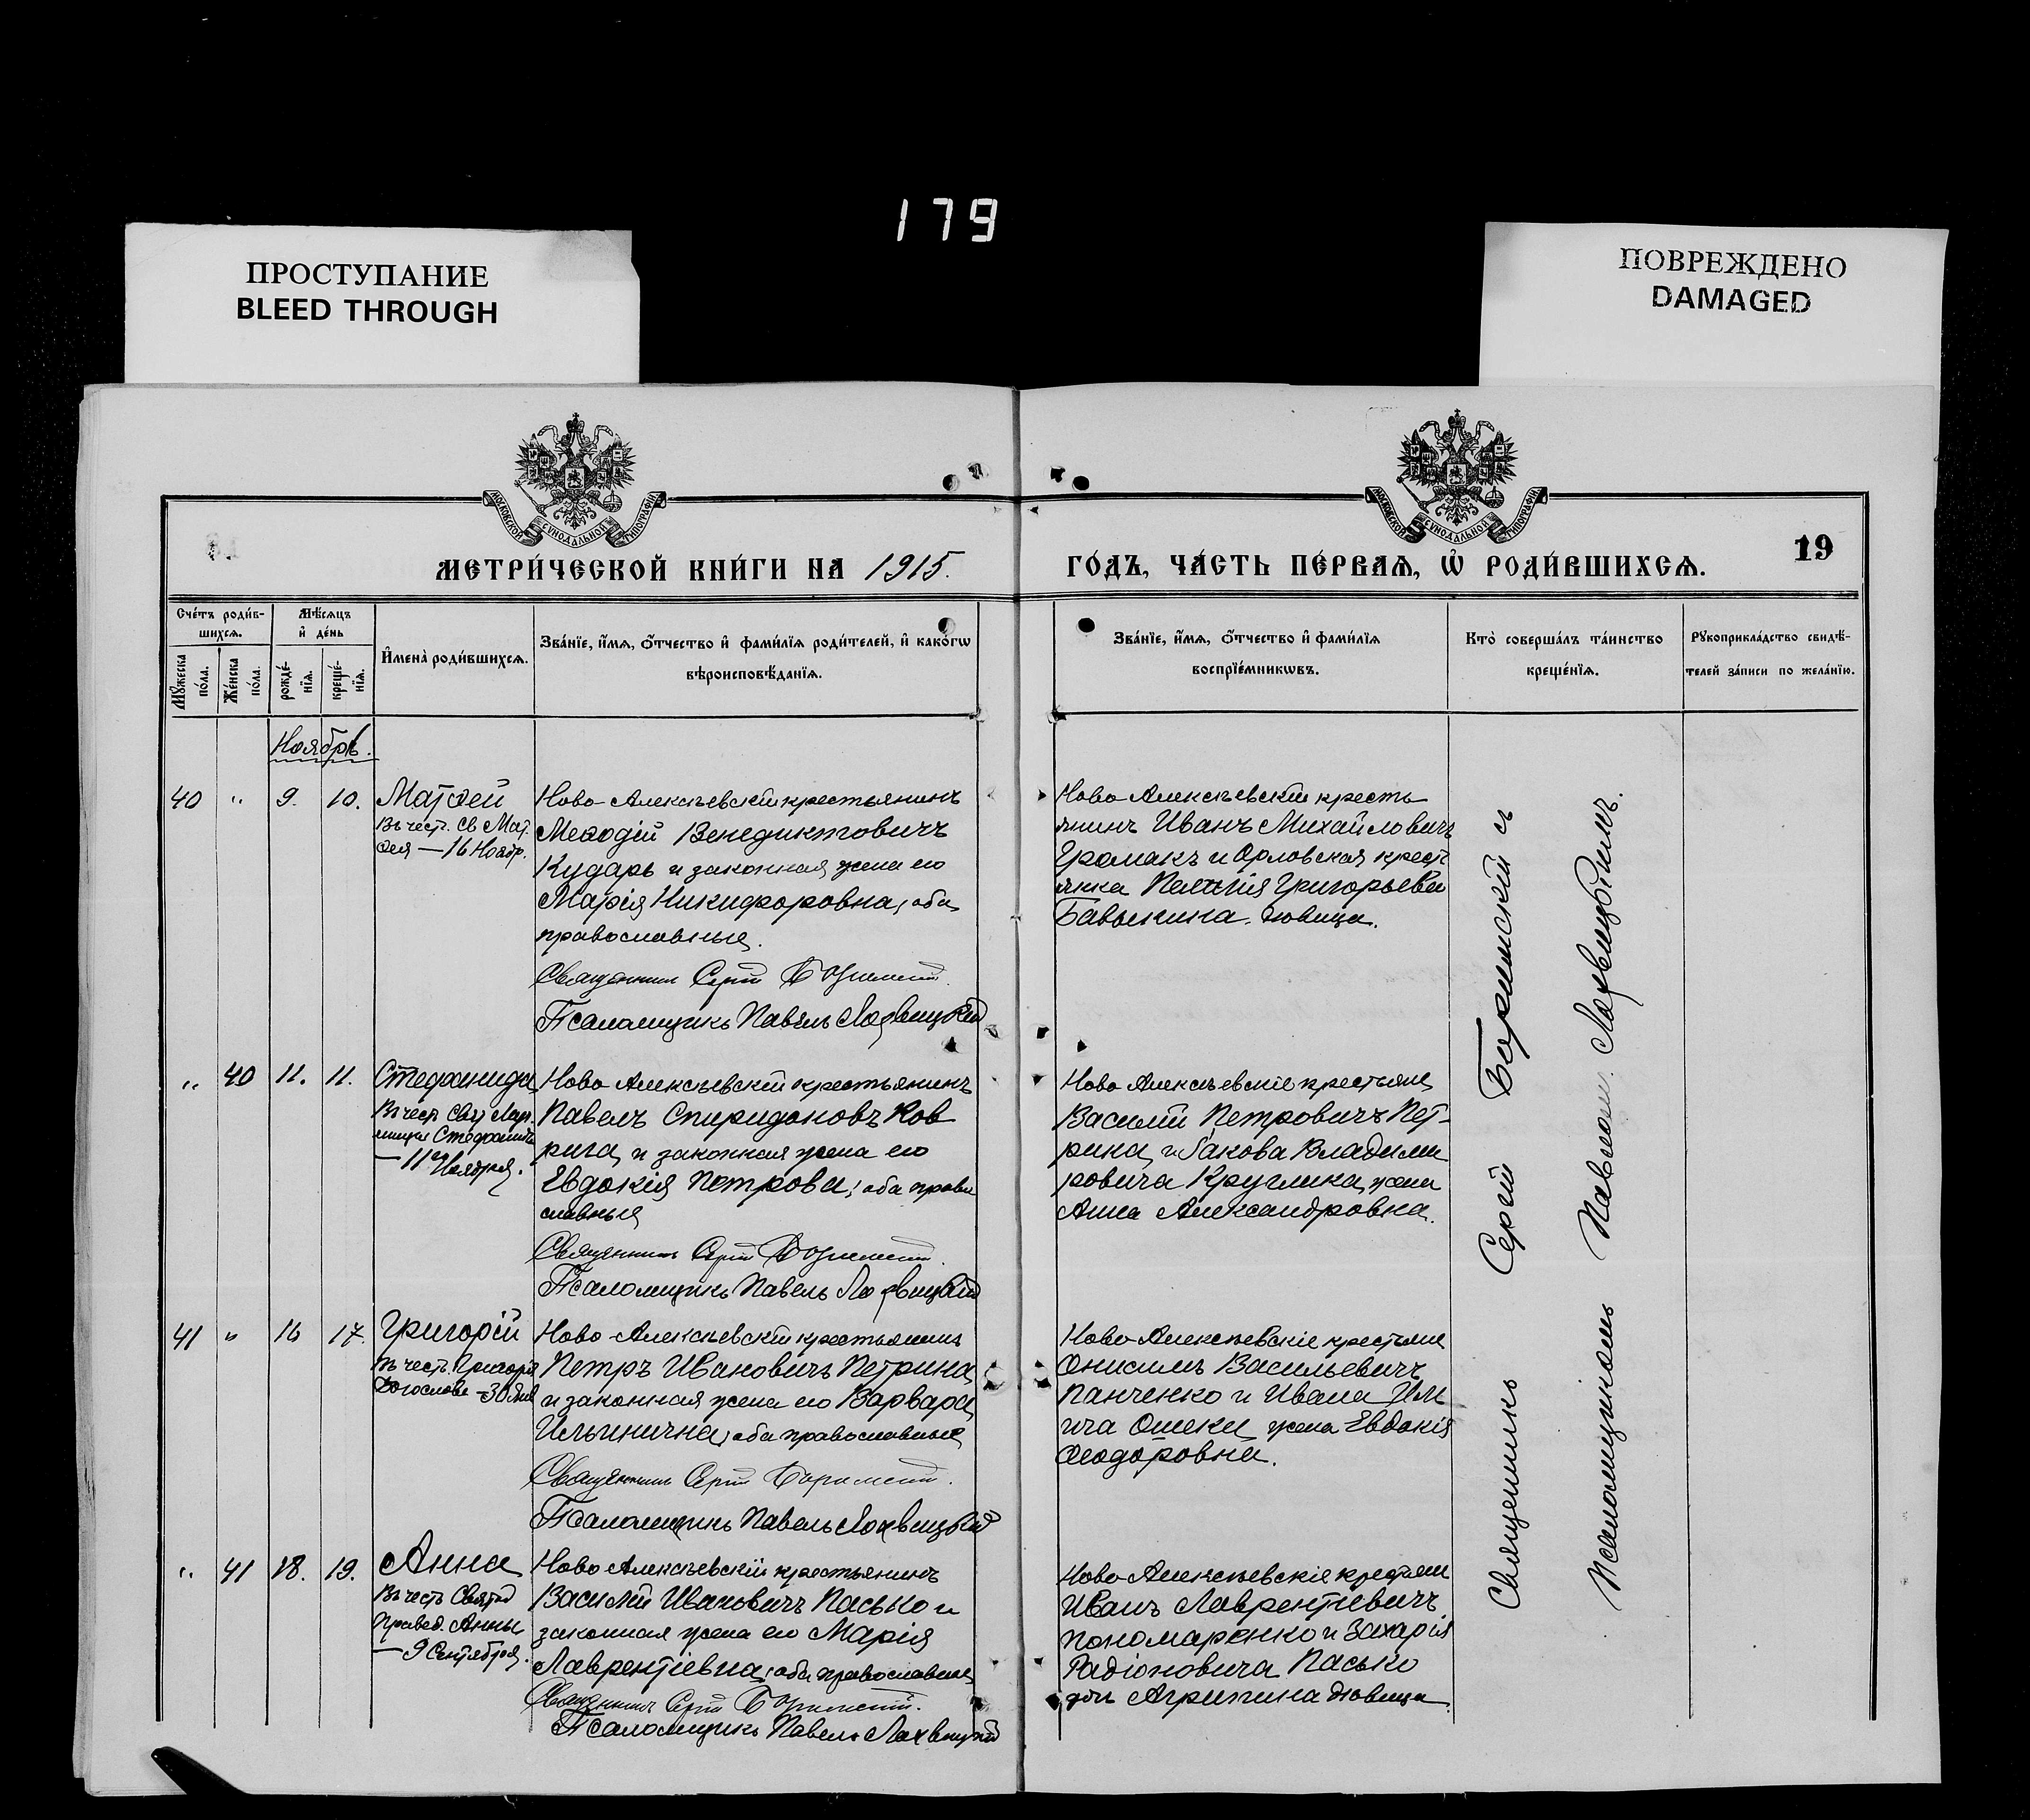 179
ПРОСТУПАНИЕ
BLEED THROUGH
ПОВРЕЖДЕНО
DAMAGED
МОСКОВСКОЙ СУНОДАЛЬНОЙ ТИПОГРАФІИ
МОСКОВСКОЙ СУНОДАЛЬНОЙ ТИПОГРАФІИ
МЕТРИ́ЧЕСКОЙ КНИ́ГИ НА 1915.
ГО́ДЪ, ЧА́СТЬ ПЕ́РВАѦ, Ѡ҆ РОДИ́ВШИХСѦ.
19
Сче́тъ роди́в-
шихсѧ.
Мꙋ́жеска
по́ла.
Же́нска
по́ла.
Мѣ́сѧцъ
и҆ де́нь
рожде́-
нїѧ.
креще́-
нїѧ.
И҆мена̀ роди́вшихсѧ.
Зва́нїе, и҆́мѧ, ѻ҆́тчество и҆ фами́лїѧ роди́телей, и҆ како́гѡ
вѣроисповѣ́данїѧ.
Зва́нїе, и҆́мѧ, ѻ҆́тчество и҆ фами́лїѧ
воспрїе́мникѡвъ.
Кто̀ соверша́лъ та́инство
креще́нїѧ.
Рꙋкоприкла́дство свидѣ́-
телей за́писи по жела́нїю.
Ноябрь.
40 " 9. 10.
Матѳей
Въ чест. Св Мат.
ѳея — 16 Ноябр.
Ново-Алексѣевскій крестьянинъ
Меѳодій Венедиктовичъ
Кударь и законная жена его
Марія Никифоровна, оба
православные.
Священникъ Сергій Боримскій.
Псаломщикъ Павелъ Лохвицкій
Ново Алексѣевскій кресть
янинъ Иванъ Михайловичъ
Громакъ и Орловская крест
янка Григорьева
дѣвица.
" 40 11. 11.
Стефанида
Въ чест. Свят
Стефаниды
— 11го Ноября.
Ново Алексѣевскій крестьянинъ
Павелъ Спиридоновъ Ков
рига и законная жена его
Евдокія Петрова, оба право
славные
Священникъ Сергій Боримскій.
Псаломщикъ Павелъ Лохвицкій
Ново Алексѣевскіе крестьяне
Василій Петровичъ Пет-
рина и Іакова Владими
ровича Круглика жена
Анна Александровна.
41 " 16 17.
Григорій
въ честь Григорія
Богослова — 30 Янв
Ново-Алексѣевскій крестьянинъ
Петръ Ивановичъ Петрина
и законная жена его Варвара
Ильинична, оба православные
Священникъ Сергій Боримскій.
Псаломщикъ Павелъ Лохвицкій
Ново-Алексѣевскіе крестьяне
Онисимъ Васильевичъ
Панченко и Ивана Иль
ича жена Евдокія
Ѳеодоровна.
" 41 18. 19.
Анна
Въ честь Святой
Правед. Анны
— 9 Сентября.
Ново Алексѣевскій крестьянинъ
Василій Ивановичъ Пасько и
законная жена его Марія
Лаврентіевна, оба православные
Священникъ Сергій Боримскій.
Псаломщикъ Павелъ Лохвицкій
Ново Алексѣевскіе крестьяне
Иванъ Лаврентіевичъ
Пономаренко и Захарія
Радіоновича Пасько
дочь Агрипина дѣвица.
Священникъ Сергій Боримскій съ
Псаломщикомъ Павломъ Лохвицкимъ.